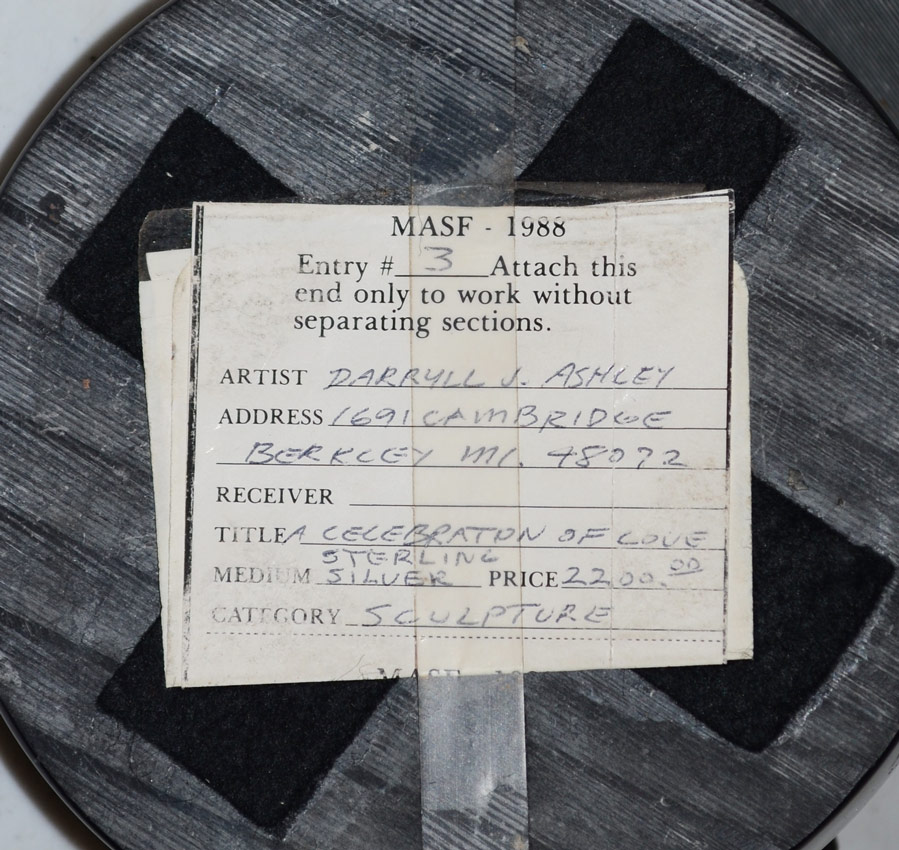 MASF - 1988
Entry # 3 Attach this
end only to work without
separating sections.
ARTIST DARRYLL J. ASHLEY
ADDRESS 1691 CAMBRIDGE
BERKLEY MI. 48072
RECEIVER
TITLE A CELEBRATON OF LOVE
STERLING
MEDIUM SILVER PRICE 2200.00
CATEGORY SCULPTURE